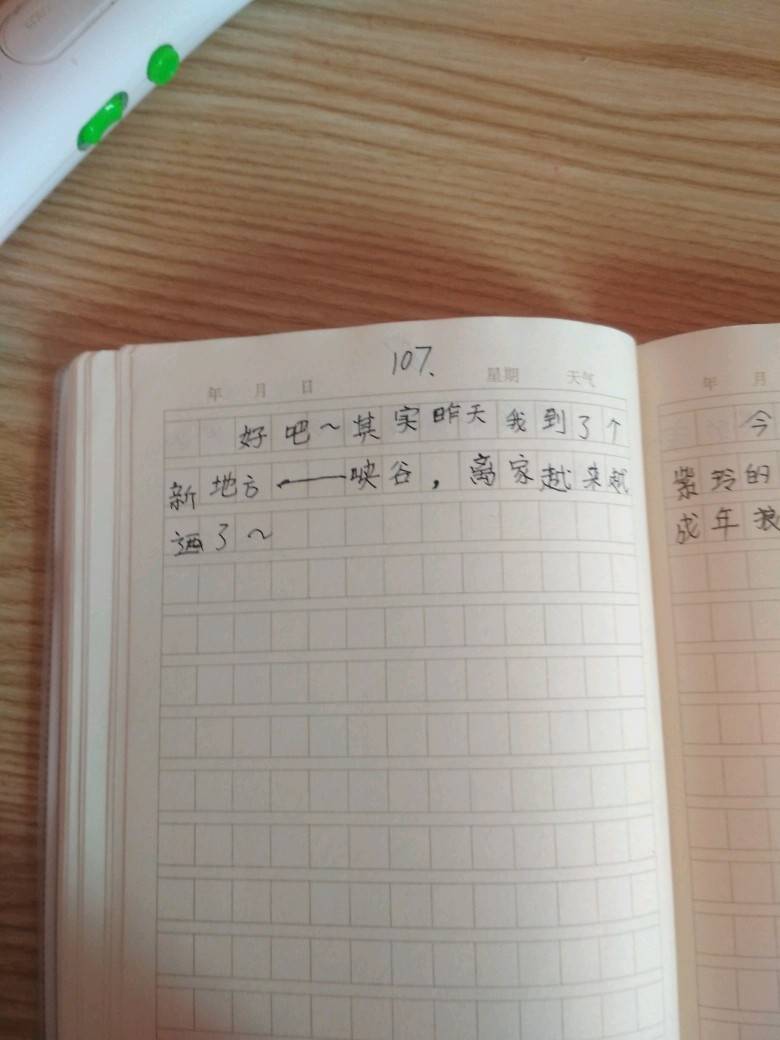 107、
年 月 日 星期 天气
好吧~其实昨天我到了个
新地方——峡谷，离家越来越
了~
年 月
今
紫玲的
成年狼